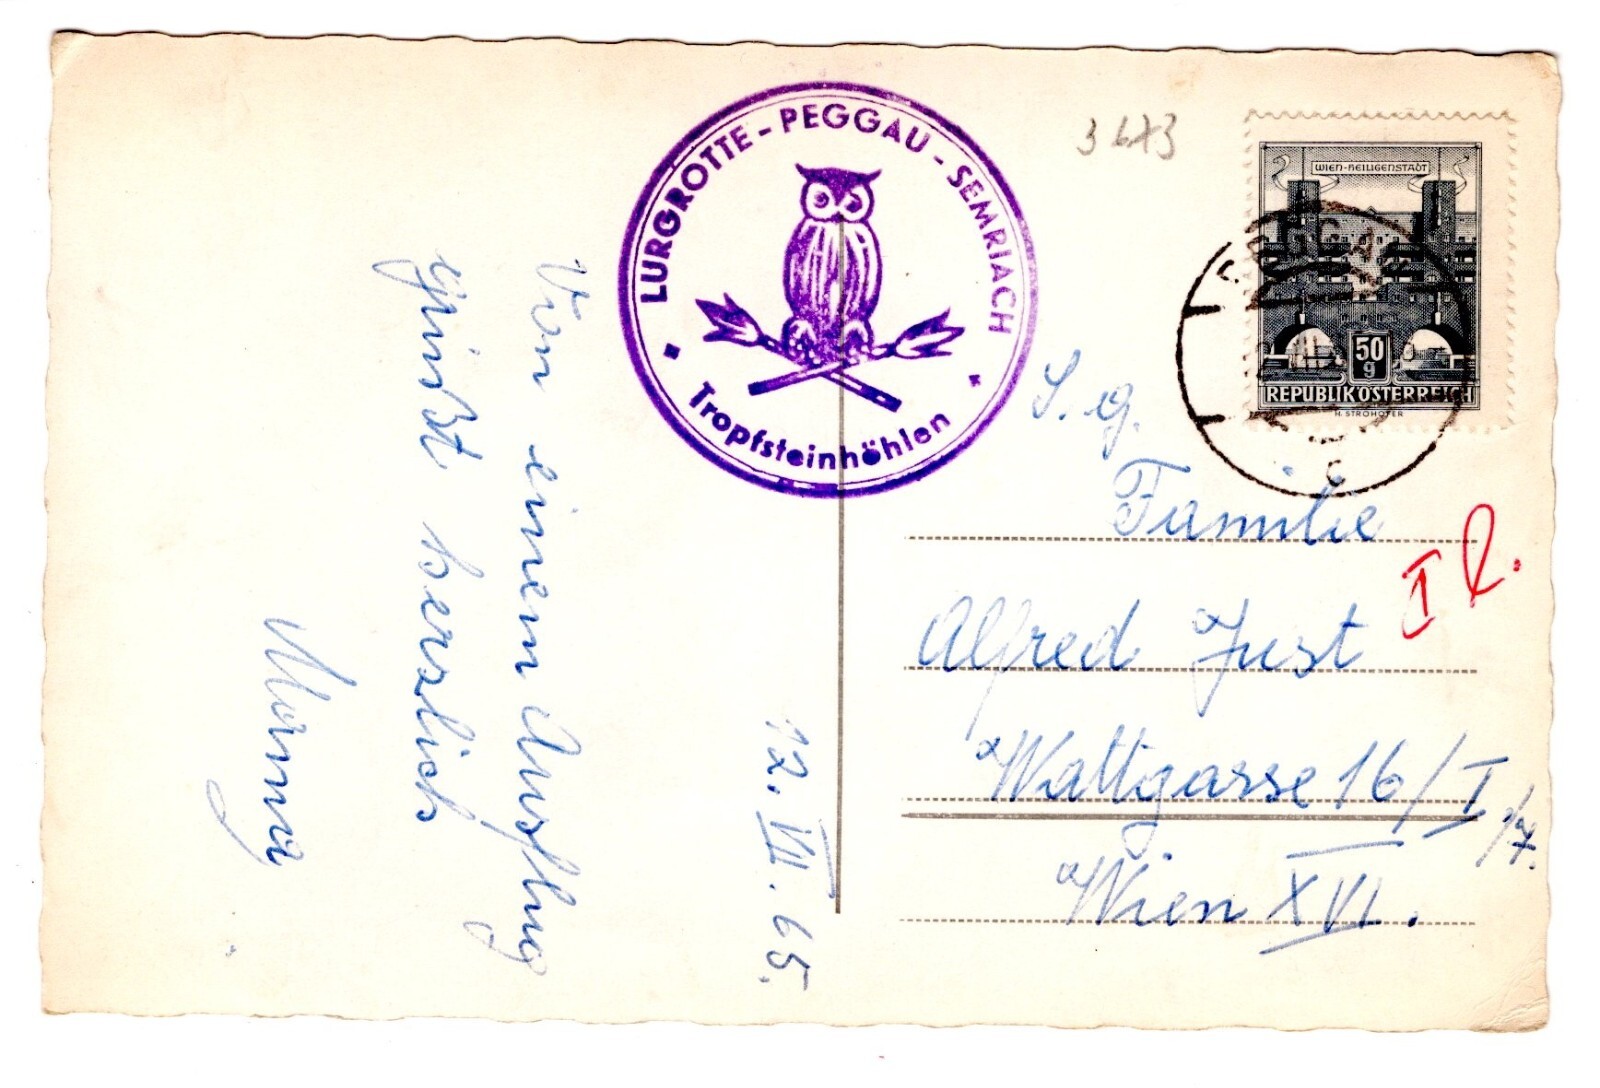 LURGROTTE - PEGGAU - SEMRIACH
Tropfsteinhöhlen
WIEN-HEILIGENSTADT
50
g
REPUBLIK ÖSTERREICH
H. STROHOFER
Von einem Ausflug
grüßt herzlich
12. VII. 65.
S. g.
Familie
Alfred Just
Wattgasse 16/I
/7.
Wien XVI.
I